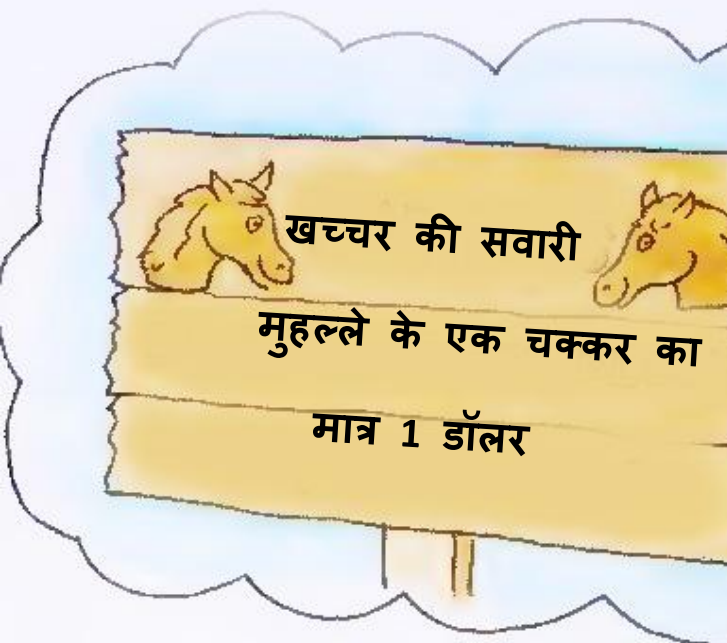 खच्चर की सवारी
मुहल्ले के एक चक्कर का
मात्र 1 डॉलर